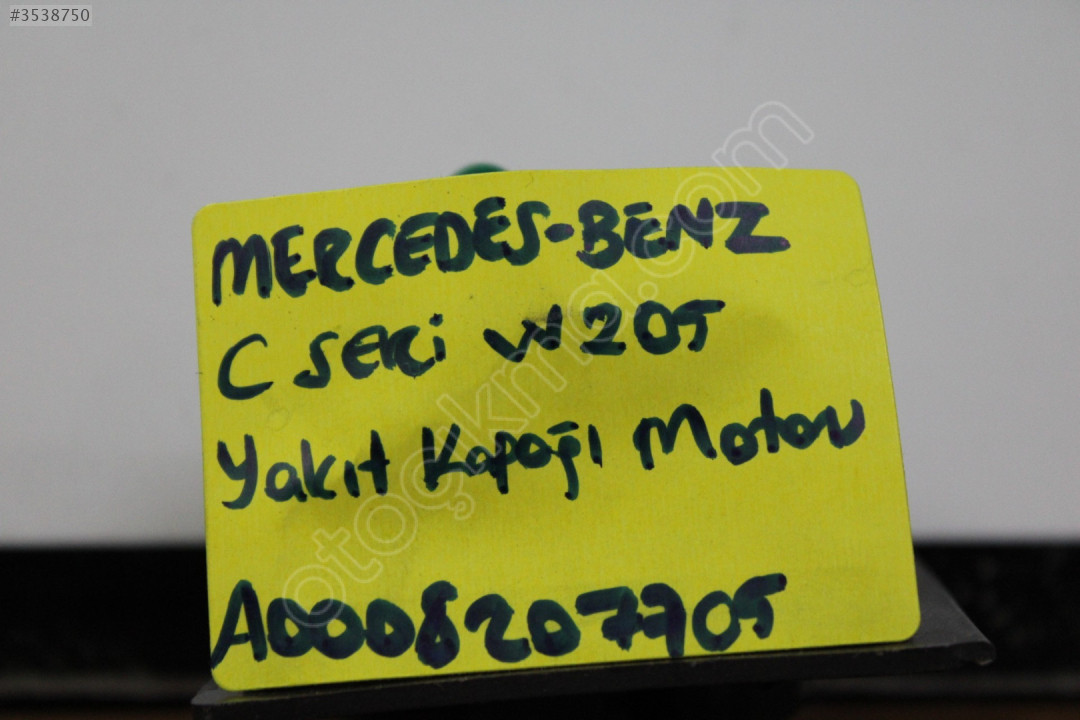 #3538750
MERCEDES-BENZ
C SERİ W205
Yakıt Kapağı Motoru
A0008207705
otoçıkma.com